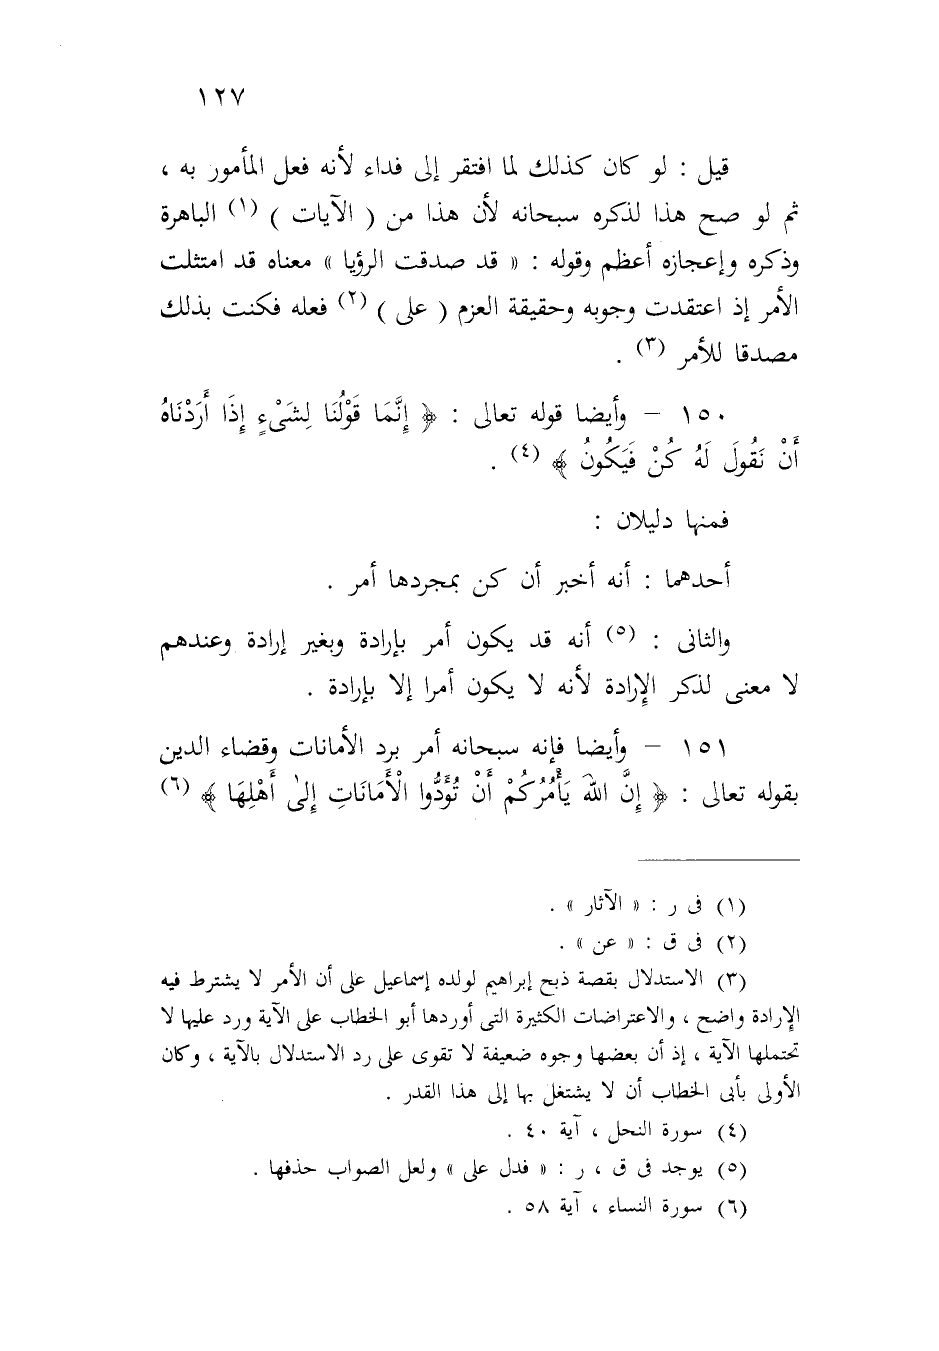 ١٢٧
قيل : لو كان كذلك لما افتقر إلى فداء لأنه فعل المأمور به ،
ثم لو صح هذا لذكره سبحانه لأن هذا من ( الآيات ) (١) الباهرة
وذكره وإعجازه أعظم وقوله : « قد صدقت الرؤيا » معناه قد امتثلت
الأمر إذ اعتقدت وجوبه وحقيقة العزم ( على ) (٢) فعله فكنت بذلك
مصدقا للأمر (٣) .
١٥٠ – وأيضا قوله تعالى : ﴿ إِنَّمَا قَوْلُنَا لِشَىْءٍ إِذَا أَرَدْنَاهُ
أَنْ نَقُولَ لَهُ كُنْ فَيَكُونُ ﴾ (٤) .
فمنها دليلان :
أحدهما : أنه أخبر أن كن بمجردها أمر .
والثانى : (٥) أنه قد يكون أمر بإرادة وبغير إرادة وعندهم
لا معنى لذكر الإرادة لأنه لا يكون أمرا إلا بإرادة .
١٥١ – وأيضا فإنه سبحانه أمر برد الأمانات وقضاء الدين
بقوله تعالى : ﴿ إِنَّ اللَّهَ يَأْمُرُكُمْ أَنْ تُؤَدُّوا الْأَمَانَاتِ إِلىٰ أَهْلِهَا ﴾ (٦)
(١) فى ر : « الآثار » .
(٢) فى ق : « عن » .
(٣) الاستدلال بقصة ذبح إبراهيم لولده إسماعيل على أن الأمر لا يشترط فيه
الإرادة واضح ، والاعتراضات الكثيرة التى أوردها أبو الخطاب على الآية ورد عليها لا
تحتملها الآية ، إذ أن بعضها وجوه ضعيفة لا تقوى على رد الاستدلال بالآية ، وكان
الأولى بأبى الخطاب أن لا يشتغل بها إلى هذا القدر .
(٤) سورة النحل ، آية ٤٠ .
(٥) يوجد فى ق ، ر : « فدل على » ولعل الصواب حذفها .
(٦) سورة النساء ، آية ٥٨ .